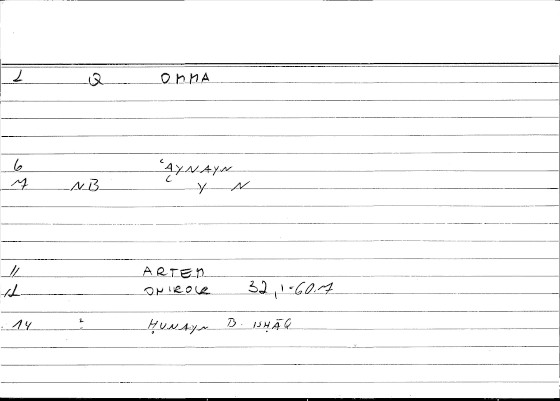 1 Q OMMA
6 ʿAYNAYN
7 NB ʿ Y N
11 ARTEM
12 ONIROCR 32,1-60.7
14 : ḤUNAYN B. ISḤĀQ